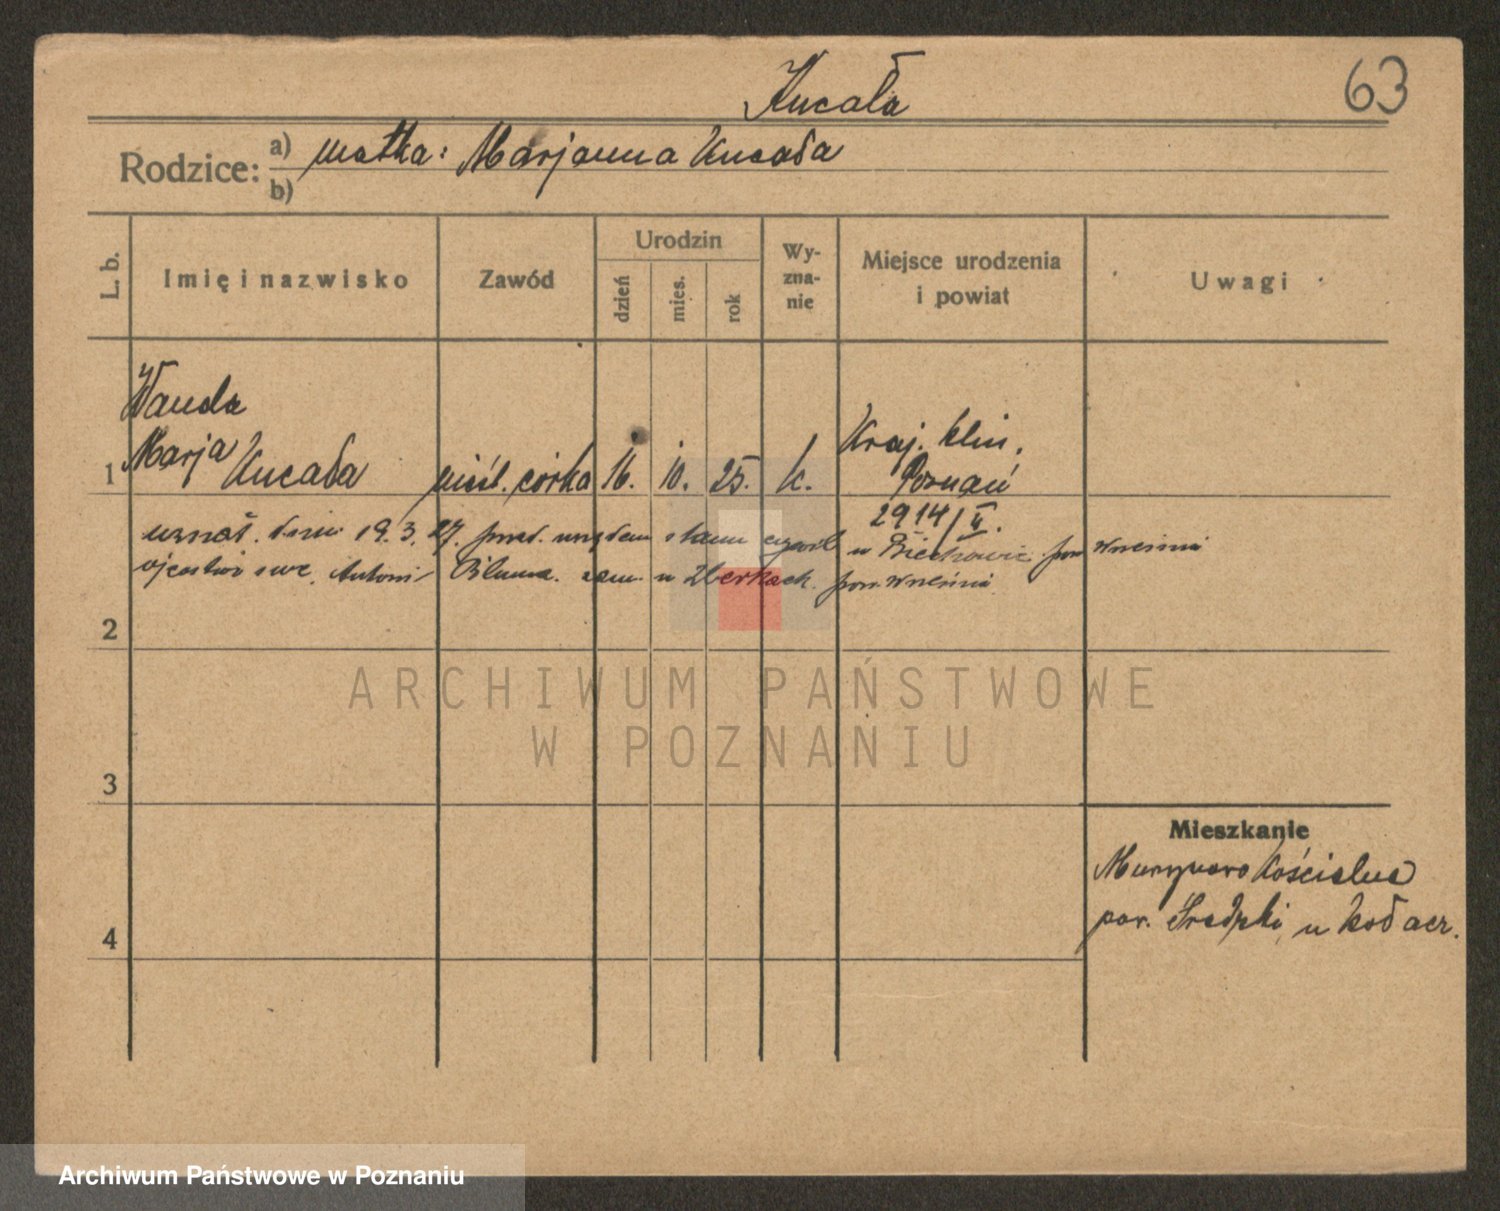 Kucała
63
Rodzice: a) matka: Marjanna Kucała
b)
L. b.
Imię i nazwisko
Zawód
Urodzin
dzień
mies.
rok
Wy-
zna-
nie
Miejsce urodzenia
i powiat
Uwagi
Wanda
Marja Kucała
1
nieśl. córka 16. 10. 25. k.
Kraj. klin.
Poznań
2914/II.
uznał. dnia 19.3.27. przed. urzędem stanu cywil w Biechowie pow Wrześnii
ojcostwo swe, Antoni Bluma. zam. w pow. Wrześnii
2
3
4
Mieszkanie
Murzynowo Kościelne
pow. Średzki, u Kołacz.
ARCHIWUM PAŃSTWOWE
W POZNANIU
Archiwum Państwowe w Poznaniu